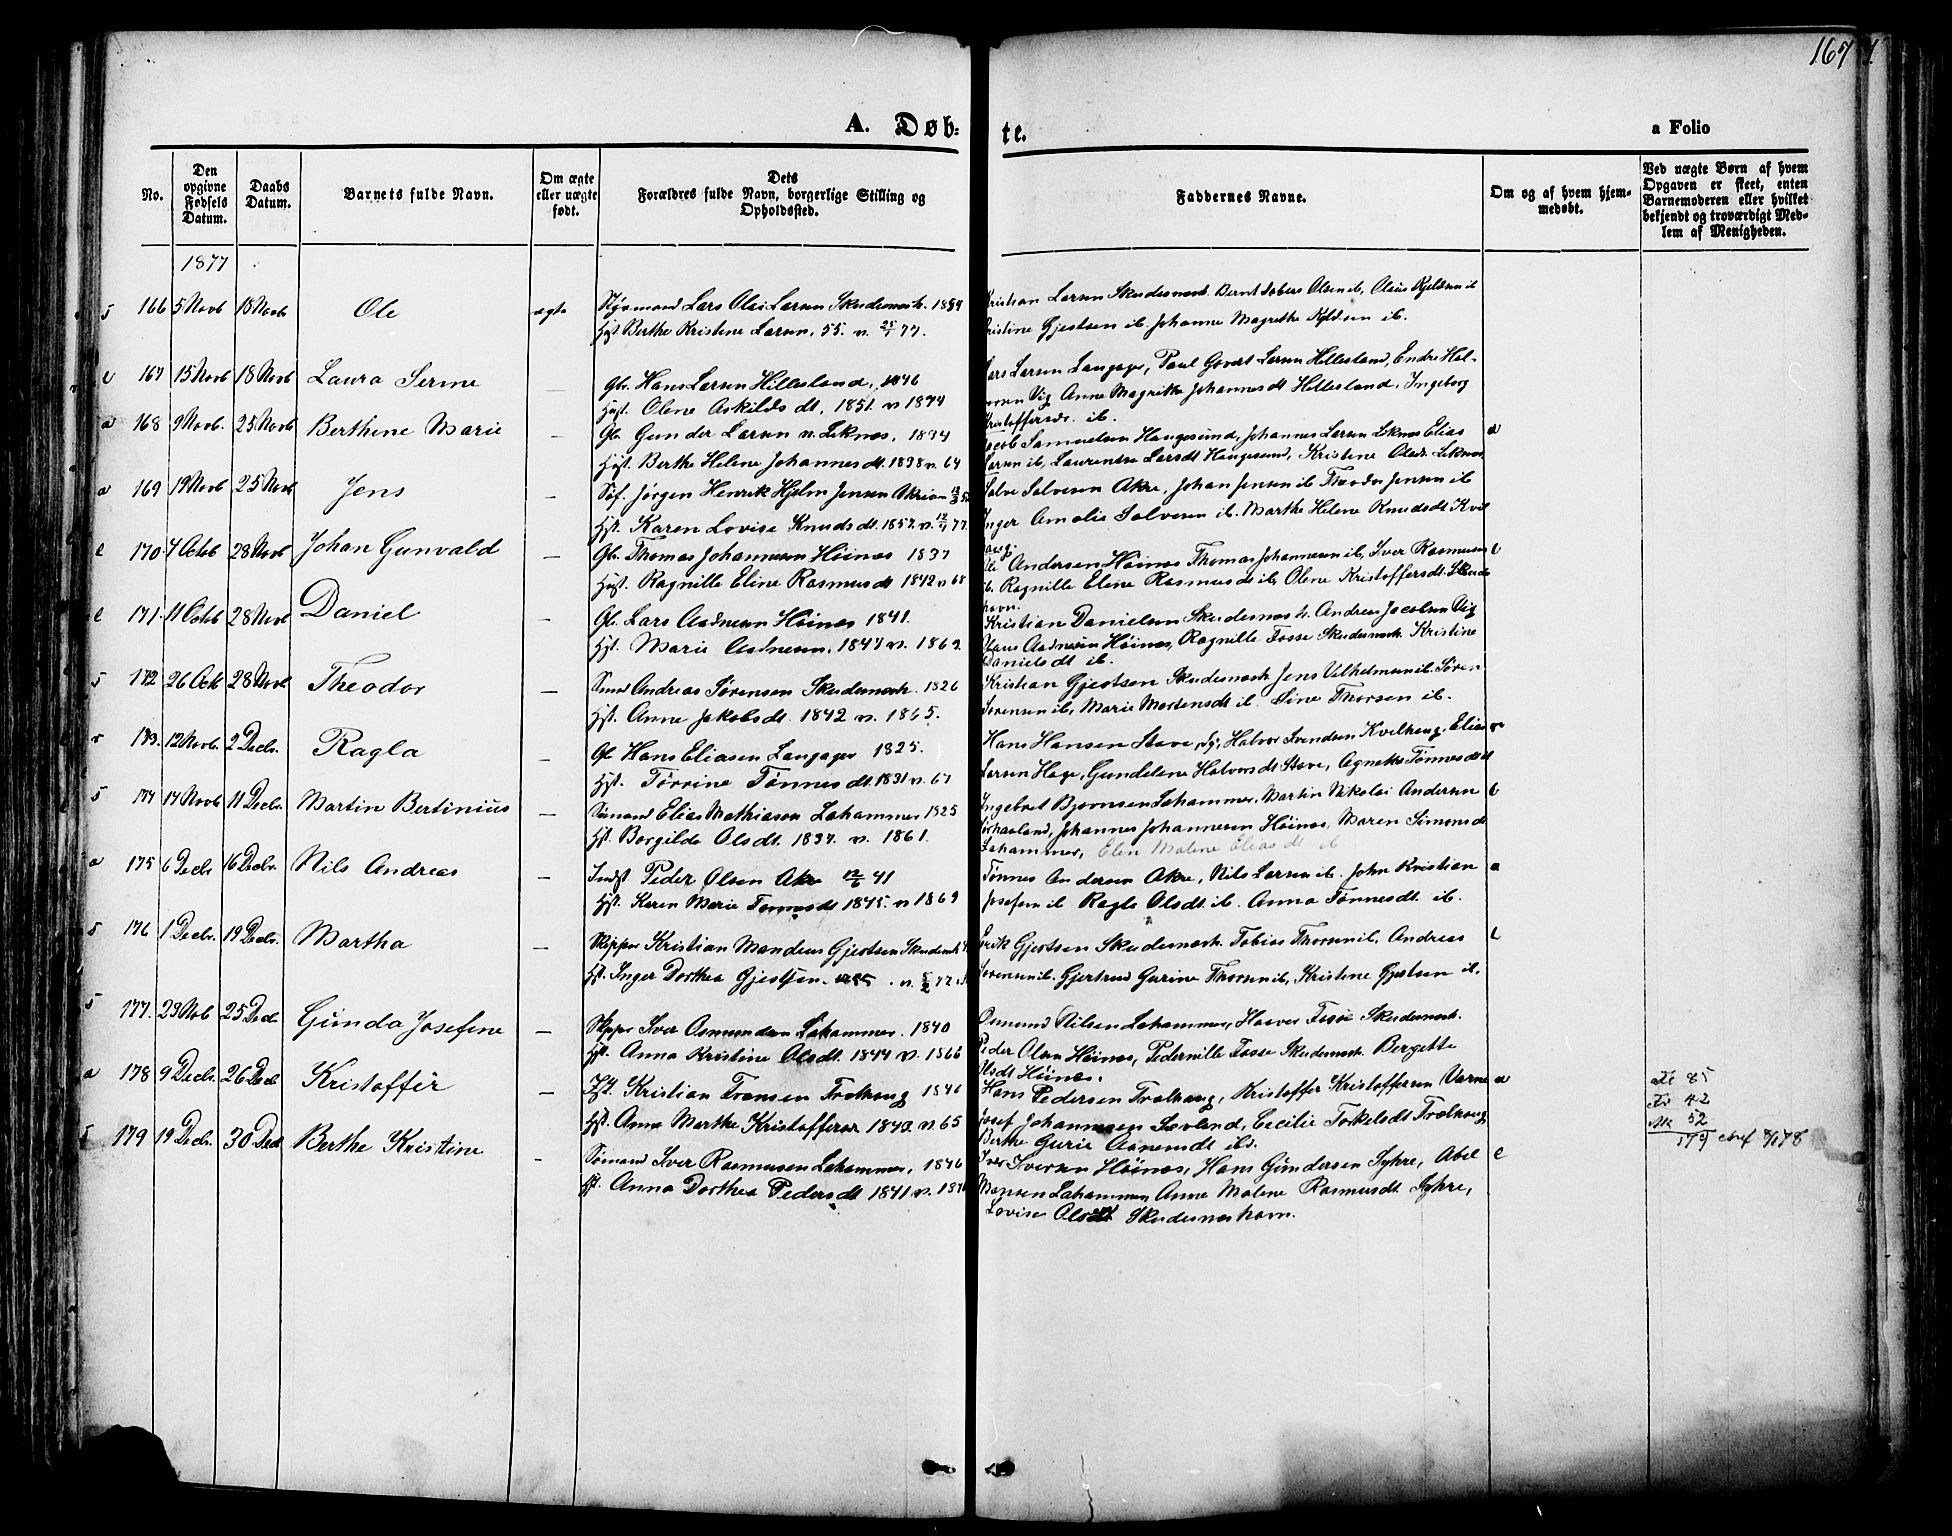 167
A. Døb-
te.
a Folio
No.
Den opgivne Fødsels Datum.
Daabs Datum.
Barnets fulde Navn.
Om ægte eller uægte født.
Dets Forældres fulde Navn, borgerlige Stilling og Opholdssted.
Faddernes Navne.
Om og af hvem hjemmedøbt.
Ved uægte Børn af hvem Opgaven er skeet, enten Barnemoderen eller hvilket bekjendt og troværdigt Medlem af Menigheden.
1877
166 5 Novb 18 Novb Ole ægte Lars Olai Larsen Skudesnesh. 1854
Hst Berthe Kristine Larsen, 55. v. 25/1 77.
Kristian Larsen Skudesnesh. Bernt Tobers Olsen ib, Olaus Kjeldsen ib
Kristine Gjertsen ib. Johanne Magrethe Kjeldsen ib.
167 15 Novb 18 Novb Laura Serine — Gbr. Hans Larsen Hillesland, 1846
Hust. Olene Askildsdt, 1851. v 1874
Lars Larsen Langager, Paul Govert Larsen Hillesland, Endre Hal-
vorsen Vig Anne Magrethe Johannesdt Hillesland, Ingeborg
Kristoffersdt. ib.
168 9 Novb. 25 Novb Berthine Marie — Gb. Gunder Larsen n. Liknes, 1834
Hust. Berthe Helene Johannesdt. 1838 v. 64
Jacob Samuelsen Haugesund, Johannes Larsen Liknes Elias
Larsen ib, Laurentse Larsdt Haugesund, Kristine Olsdt Liknes
169 19 Novb 25 Novb Jens — Søf. Jørgen Henrik Hjelm Jensen Akre
Hst. Karen Lovise Knudsdt. 1857. v. 77.
Salve Salvesen Akre, Johan Jensen ib Theodor Jensen ib
Inger Amalie Salvesen ib. Marthe Helene Knudsdt Kvil
haug.
170 4 Octob 28 Novb Johan Gunvald — Gb. Thomas Johannesen Høines 1837
Hust. Ragnille Eline Rasmusdt 1842 v 68
Andersen Høines Thomas Johannesen ib, Iver Rasmussen
ib. Ragnille Eline Rasmusdt ib, Olene Kristoffersdt. Skudes
havn.
171. 11 Octob 28 Novb Daniel — Gb. Lars Aadnesen Høines 1841.
Hst. Marie Aadnesen, 1847 v. 1869.
Kristian Danielsen Skudesnesh. Andreas Jacobsen Vig
Hans Aadnesen Høines, Ragnille Fosse Skudesnesh. Kristine
Danielsdt ib.
172 26 Octb 28 Novb Theodor — Smed Andreas Sørensen Skudesnesh. 1826
Hst. Anne Jakobsdt. 1842 v. 1865.
Kristian Gjertsen Skudesnesh Jens Vilhelmsen ib. Søren
Sørensen ib, Marie Mortensdt ib. Sine Thorsen ib.
173. 12 Novb. 2 Decb. Ragla — Gb Hans Eliasen Langager 1825.
Hst. Tørrine Tønnesdt. 1831 v. 67
Hans Hansen Stave, Halvor Svendsen Kvilhaug, Elias
Larsen Hage, Gundelene Halvorsdt Stave, Agnethe Tønnesdt
174 14 Novb 11 Decb. Martin Bertinius — Sømand Elias Mathiasen Lahammer 1825
Hst. Borgilde Olsdt. 1837. v. 1861.
Ingebret Bjørnsen Lahammer, Martin Nikolai Andersen
Johannes Johannesen Høines, Maren Simonsdt
Lahammer, Elen Malene Eliasdt ib
175 6 Decbr 16 Decbr. Nils Andreas — Indst Peder Olsen Akre 12/6 41
Hst. Karen Marie Tønnesdt 1845. v 1869
Tønnes Andersen Akre, Nils Larsen ib. John Kristian
Josefsen ib Ragle Olsdt. ib. Anna Tønnesdt. ib.
176 1 Decbr. 19 Decbr. Martha — Skipper Kristian Mandrus Gjertsen Skudesnesh
Hst. Inger Dorthea Gjertsen.
Erik Gjertsen Skudesnesh. Tobias Thorsen ib, Andreas
Sørensen ib. Gjertrud Gurine Thorsen ib, Kristine Gjertsen ib.
177. 23 Nob 25 Decb Gunda Josefine — Skipper Iver Osmundsen Lahammer. 1840
Hst. Anna Kristine Olsdt. 1844 v. 1866
Osmund Nilsen Lahammer, Haaver Fosse Skudesnesh.
Peder Olsen Høines, Pedernille Fosse Skudesnesh. Bergitte
Olsdt Høines.
178 9 Decbr. 26 Decb Kristoffer — Kristian Transen Trælhaug 1846
Hst. Anna Marthe Kristoffersdt 1840 v. 65
Hans Pedersen Trælhaug, Kristoffer Kristoffersen Varne
Josef Johannesen Sævland, Cecilie Torkelsdt Trælhaug
Berthe Gurie Aanensdt ibd.
179 19 Decbr. 30 Decb Berthe Kristine - Sømand Iver Rasmusen Lahammer, 1846
Hst. Anna Dorthea Pedersdt 1841 v.
Iver Iversen Høines, Hans Gundersen Syhre, Abel
Monsen Lahammer, Anne Malene Rasmusdt. Syhre,
Lovise Olsdt Skudesneshavn.
85
42
52
179